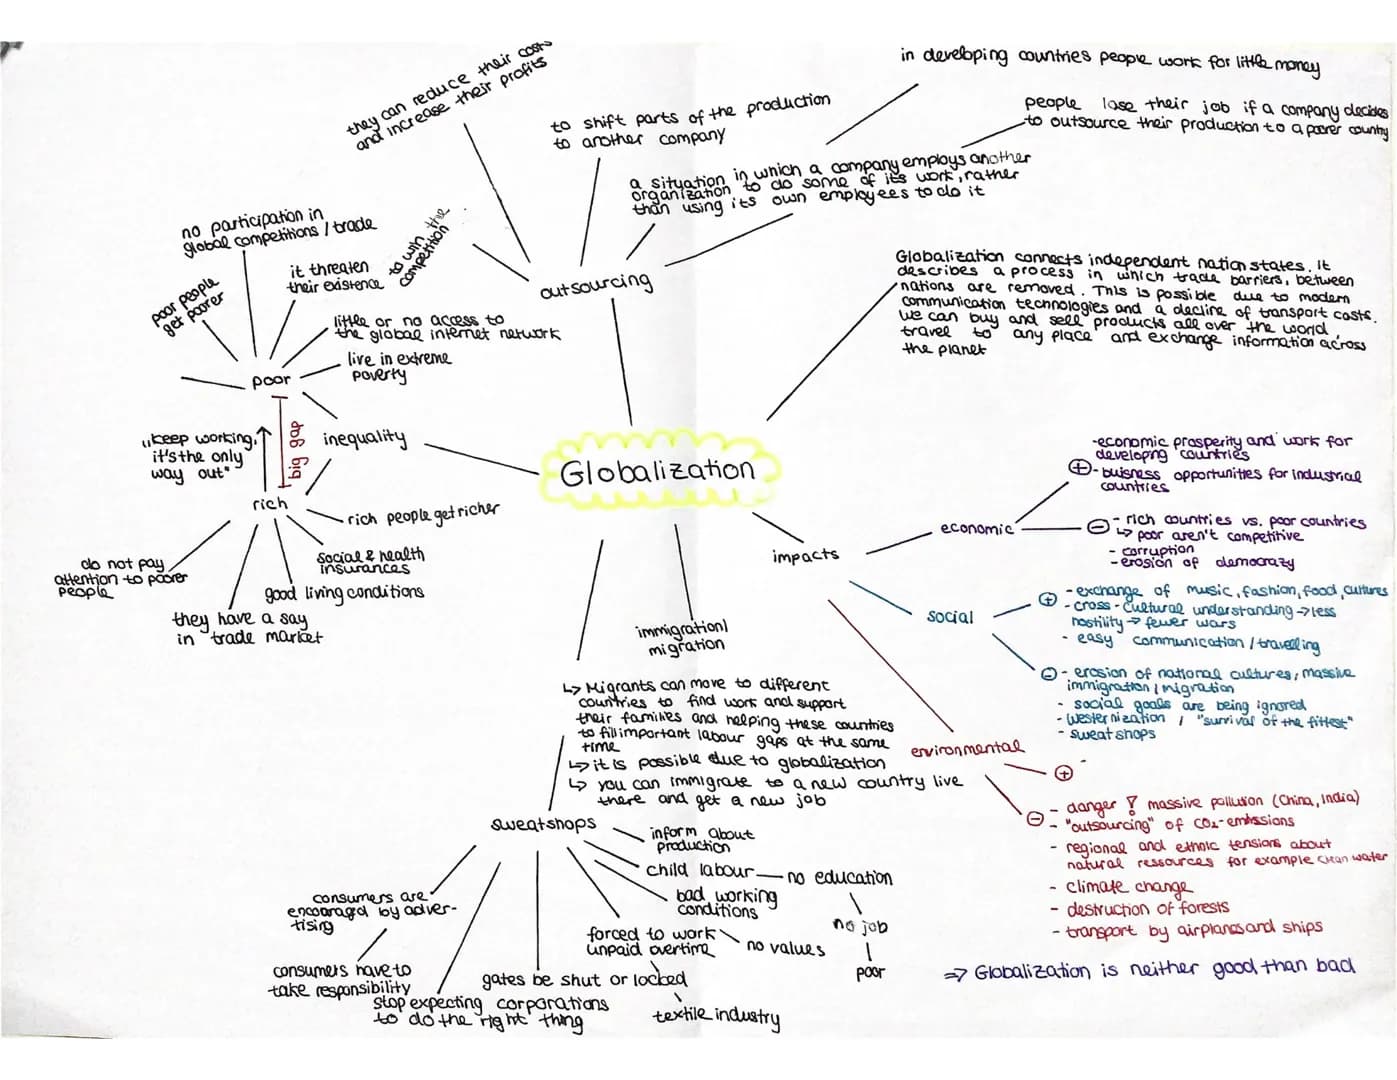 they can reduce their costs
and increase their profits
to shift parts of the production
to another company
in developing countries people work for little money
people lose their job if a company decides
to outsource their production to a poorer country
a situation in which a company employs another
organization to do some of its work, rather
than using its own employees to do it
to win the
competition
outsourcing
no participation in
global competitions / trade
it threaten
their existence
poor people
get poorer
little or no access to
the global internet network
live in extreme
poverty
poor
inequality
big gap
„keep working,
it's the only
way out"
rich
rich people get richer
social & health
insurances
good living conditions
they have a say
in trade market
do not pay
attention to poorer
people
Globalization connects independent nation states. It
describes a process in which trade barriers, between
nations are removed. This is possible due to modern
communication technologies and a decline of transport costs.
we can buy and sell products all over the world,
travel to any place and exchange information across
the planet
Globalization
impacts
economic
+ -economic prosperity and work for
developng countries
- buisness opportunities for industrial
countries
- - rich countries vs. poor countries
↳ poor aren't competitive
- corruption
- erosion of democrazy
social
+ - exchange of music, fashion, food, cultures
- cross-cultural understanding → less
hostility → fewer wars
- easy communication / travelling
- - erosion of national cultures, massive
immigration / migration
- social goals are being ignored
- westernization / "survival of the fittest"
- sweatshops
environmental
+ -
- - danger ! massive pollution (China, India)
- "outsourcing" of CO2-emissions
- regional and ethnic tensions about
natural ressources for example clean water
- climate change
- destruction of forests
- transport by airplanes and ships
⇒ Globalization is neither good than bad
immigration/
migration
↳ Migrants can move to different
countries to find work and support
their families and helping these countries
to fill important labour gaps at the same
time
↳ it is possible due to globalization
↳ you can immigrate to a new country live
there and get a new job
sweatshops
inform about
production
child labour
no education
no job
poor
bad working
conditions
forced to work
unpaid overtime
no values
textile industry
gates be shut or locked
stop expecting corporations
to do the right thing
consumers are
encouraged by adver-
tising
consumers have to
take responsibility